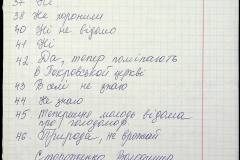 37 Ні
38 Не хоронили
39
40 Ні не відомо
41 Ні
42 Да, тепер поміняють
в Покровській церкві
43 В селі не знаю
44 Не знаю
45 Теперішню молодь відома
про голодомор
46. Природа, не врожай